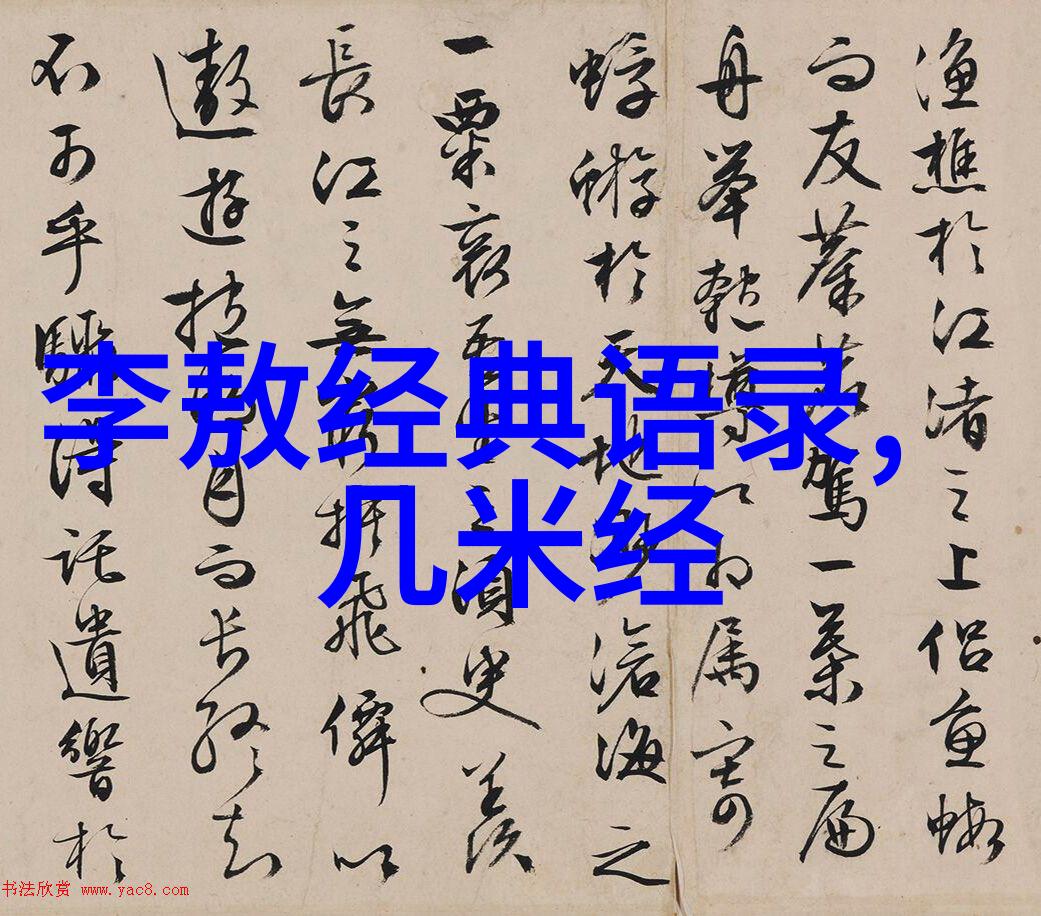 渔樵於江渚之上侶魚蝦
而友麋鹿駕一葉之扁
舟舉匏樽以相属寄
蜉蝣於天地渺滄海之
一粟哀吾生之須臾羨
長江之無窮挾飛僊以
遨遊抱明月而長終知
不可乎驟得託遺響於
李敖经典语录,
几米经
书法欣赏 www.yac8.com